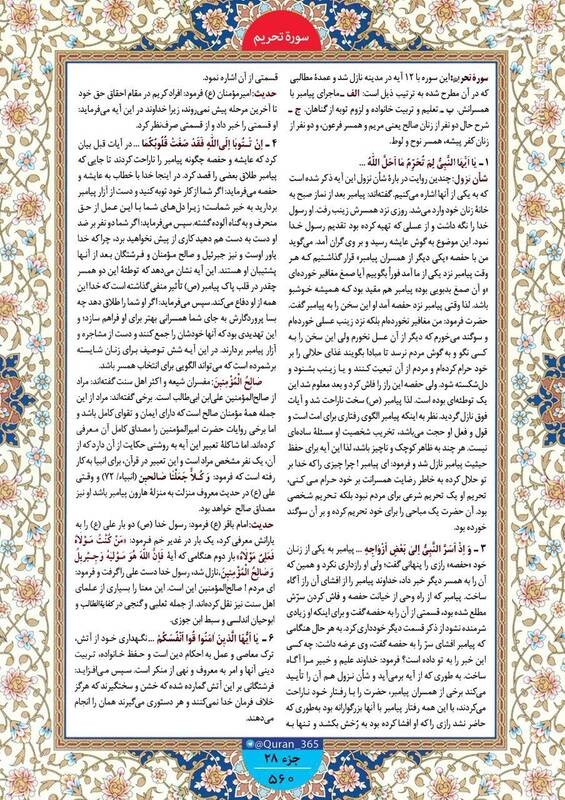 سورة تحریم
سوره تحریم: این سوره با ۱۲ آیه در مدینه نازل شد و عمدهٔ مطالبی
که در آن مطرح شده به ترتیب ذیل است: الف ـ ماجرای پیامبر با
همسرانش. ب ـ تعلیم و تربیت خانواده و لزوم توبه از گناهان. ج ـ
شرح حال دو نفر از زنان صالح یعنی مریم و همسر فرعون، و دو نفر از
زنان کفر پیشه، همسر نوح و لوط.
۱ ـ یَا أَیُّهَا النَّبِیُّ لِمَ تُحَرِّمُ مَا أَحَلَّ اللهُ ...
شأن نزول: چندین روایت در بارهٔ شأن نزول این آیه ذکر شده است
که به یکی از آنها اشاره می‌کنیم. گفته‌اند: پیامبر بعد از نماز صبح به
خانهٔ زنان خود وارد می‌شد. روزی نزد همسرش زینب رفت. او رسول
خدا را نگه داشت و از عسلی که تهیه کرده بود تقدیم رسول خدا
نمود. این موضوع به گوش عایشه رسید و بر وی گران آمد. می‌گوید
من با حفصه «یکی دیگر از همسران پیامبر» قرار گذاشتیم که هر
وقت پیامبر نزد یکی از ما آمد فوراً بگوییم آیا صمغ مغافیر خورده‌ای
«و آن صمغ بدبویی بود» پیامبر هم مقید بود که همیشه خوشبو
باشد. لذا وقتی پیامبر نزد حفصه آمد او این سخن را به پیامبر گفت.
حضرت فرمود: من مغافیر نخورده‌ام بلکه نزد زینب عسلی خورده‌ام
و سوگند می‌خورم که دیگر از آن عسل نخورم ولی این سخن را به
کسی نگو و به گوش مردم نرسد تا مبادا بگویند غذای حلالی را بر
خود حرام کرده‌ام و مردم از آن تبعیت کنند و یا زینب بشنود و
دل‌شکسته شود. ولی حفصه این راز را فاش کرد و بعد معلوم شد این
یک توطئه‌ای بوده است. لذا پیامبر (ص) سخت ناراحت شد و آیات
فوق نازل گردید. نظر به اینکه پیامبر الگوی رفتاری برای امت است و
قول و فعل او حجت می‌باشد، تخریب شخصیت او مسئلهٔ ساده‌ای
نیست. هر چند به ظاهر کوچک و ناچیز باشد، لذا این آیه برای حفظ
حیثیت پیامبر نازل شد و فرمود: ای پیامبر! چرا چیزی را که خدا بر
تو حلال کرده به خاطر رضایت همسرانت بر خود حرام می‌کنی،
تحریم او یک تحریم شرعی برای مردم نبود بلکه تحریم شخصی
بود. آن حضرت یک مباحی را برای خود تحریم کرده و بر آن سوگند
خورده بود.
۳ ـ وَ إِذْ أَسَرَّ النَّبِیُّ إِلَى بَعْضِ أَزْوَاجِهِ ... پیامبر به یکی از زنان
خود «حفصه» رازی را پنهانی گفت؛ ولی او رازداری نکرد و همین که
آن را به همسر دیگر خبر داد، خداوند پیامبر را از افشای آن راز آگاه
ساخت. پیامبر که از راه وحی از خیانت حفصه و فاش کردن سرّش
مطلع شده بود، قسمتی از آن را به حفصه گفت و برای اینکه او زیادی
شرمنده نشود از ذکر قسمت دیگر خودداری کرد. به هر حال هنگامی
که پیامبر افشای سرّ را به حفصه گفت، وی عرضه داشت: چه کسی
این خبر را به تو داده است؟ فرمود: خداوند علیم و خبیر مرا آگاه
ساخت. به طوری که از آیه برمی‌آید و شأن نزول هم آن را تأیید
می‌کند برخی از همسران پیامبر، حضرت را با رفتار خود ناراحت
می‌کردند، با این همه رفتار پیامبر با آنها بزرگوارانه بود به‌طوری که
حاضر نشد رازی را که او افشا کرده بود به رُخش بکشد و تنها به
قسمتی از آن اشاره نمود.
حدیث: امیرمؤمنان (ع) فرمود: افراد کریم در مقام احقاق حق خود
تا آخرین مرحله پیش نمی‌روند، زیرا خداوند در این آیه می‌فرماید:
او قسمتی را خبر داد و از قسمتی صرف‌نظر کرد.
۴ ـ إِنْ تَتُوبَا إِلَى اللهِ فَقَدْ صَغَتْ قُلُوبُكُمَا ... در آیات قبل بیان
کرد که عایشه و حفصه چگونه پیامبر را ناراحت کردند تا جایی که
پیامبر طلاق بعضی را قصد کرد. در اینجا خدا با خطاب به عایشه و
حفصه می‌فرماید: اگر شما از کار خود توبه کنید و دست از آزار پیامبر
بردارید به خیر شماست؛ زیرا دل‌های شما با این عمل از حق
منحرف و به گناه آلوده گشته. سپس می‌فرماید: اگر شما دو نفر بر ضد
او دست به دست هم دهید کاری از پیش نخواهید برد، چرا که خدا
یاور اوست و نیز جبرئیل و صالح مؤمنان و فرشتگان بعد از آنها
پشتیبان او هستند. این آیه نشان می‌دهد که توطئهٔ این دو همسر
چقدر در قلب پاک پیامبر (ص) تأثیر منفی گذاشته است که خدا این
همه از او دفاع می‌کند. سپس می‌فرماید: اگر او شما را طلاق دهد چه
بسا پروردگارش به جای شما همسرانی بهتر برای او فراهم سازد؛ و
این تهدیدی بود که آنها خودشان را جمع کنند و دست از مشاجره و
آزار پیامبر بردارند. در این آیه شش توصیف برای زنان شایسته
برشمرده است که می‌تواند الگویی برای انتخاب همسر باشد.
صَالِحُ الْمُؤْمِنِینَ: مفسران شیعه و اکثر اهل سنت گفته‌اند: مراد
از صالح‌المؤمنین علی‌ابن ابی‌طالب است. برخی گفته‌اند: مراد از این
جمله همهٔ مؤمنان صالح است که دارای ایمان و تقوای کامل باشد و
اما برخی روایات حضرت امیرالمؤمنین را مصداق کامل آن معرفی
کرده‌اند. اما شاکلهٔ تعبیر این آیه به روشنی حکایت از آن دارد که از
آن، یک نفر مشخص مراد است و این تعبیر در قرآن، برای انبیا به کار
رفته است که فرمود: وَ کُلّاً جَعَلْنَا صَالِحِین (انبیاء/ ۷۲) و وقتی
علی (ع) در حدیث معروف منزلت به منزلهٔ هارون پیامبر باشد او نیز
مصداق صالح خواهد بود.
حدیث: امام باقر (ع) فرمود: رسول خدا (ص) دو بار علی (ع) را به
یارانش معرفی کرد، یک بار در غدیر خم فرمود: «مَنْ کُنْتُ مَوْلاهُ
فَعَلِیٌّ مَوْلاهُ» بار دوم هنگامی که آیهٔ فَإِنَّ اللهَ هُوَ مَوْلیهُ وَ جِبْرِیلُ
وَ صَالِحُ الْمُؤْمِنِینَ، نازل شد، رسول خدا دست علی را گرفت و فرمود:
ای مردم! صالح‌المؤمنین این است. این معنا را بسیاری از علمای
اهل سنت نیز نقل کرده‌اند. از جمله ثعلبی و گنجی در کفایةالطالب و
ابوحیان اندلسی و سبط ابن جوزی.
۶ ـ یَا أَیُّهَا الَّذِینَ آمَنُوا قُوا أَنْفُسَکُمْ ... نگهداری خود از آتش،
ترک معاصی و عمل به احکام دین است و حفظ خانواده، تربیت
دینی آنها و امر به معروف و نهی از منکر است. سپس می‌افزاید:
فرشتگانی بر این آتش گمارده شده که خشن و سختگیرند که هرگز
خلاف فرمان خدا نمی‌کنند و هر دستوری می‌گیرند همان را انجام
می‌دهند.
@Quran_365
جزء ۲۸
۵۶۰